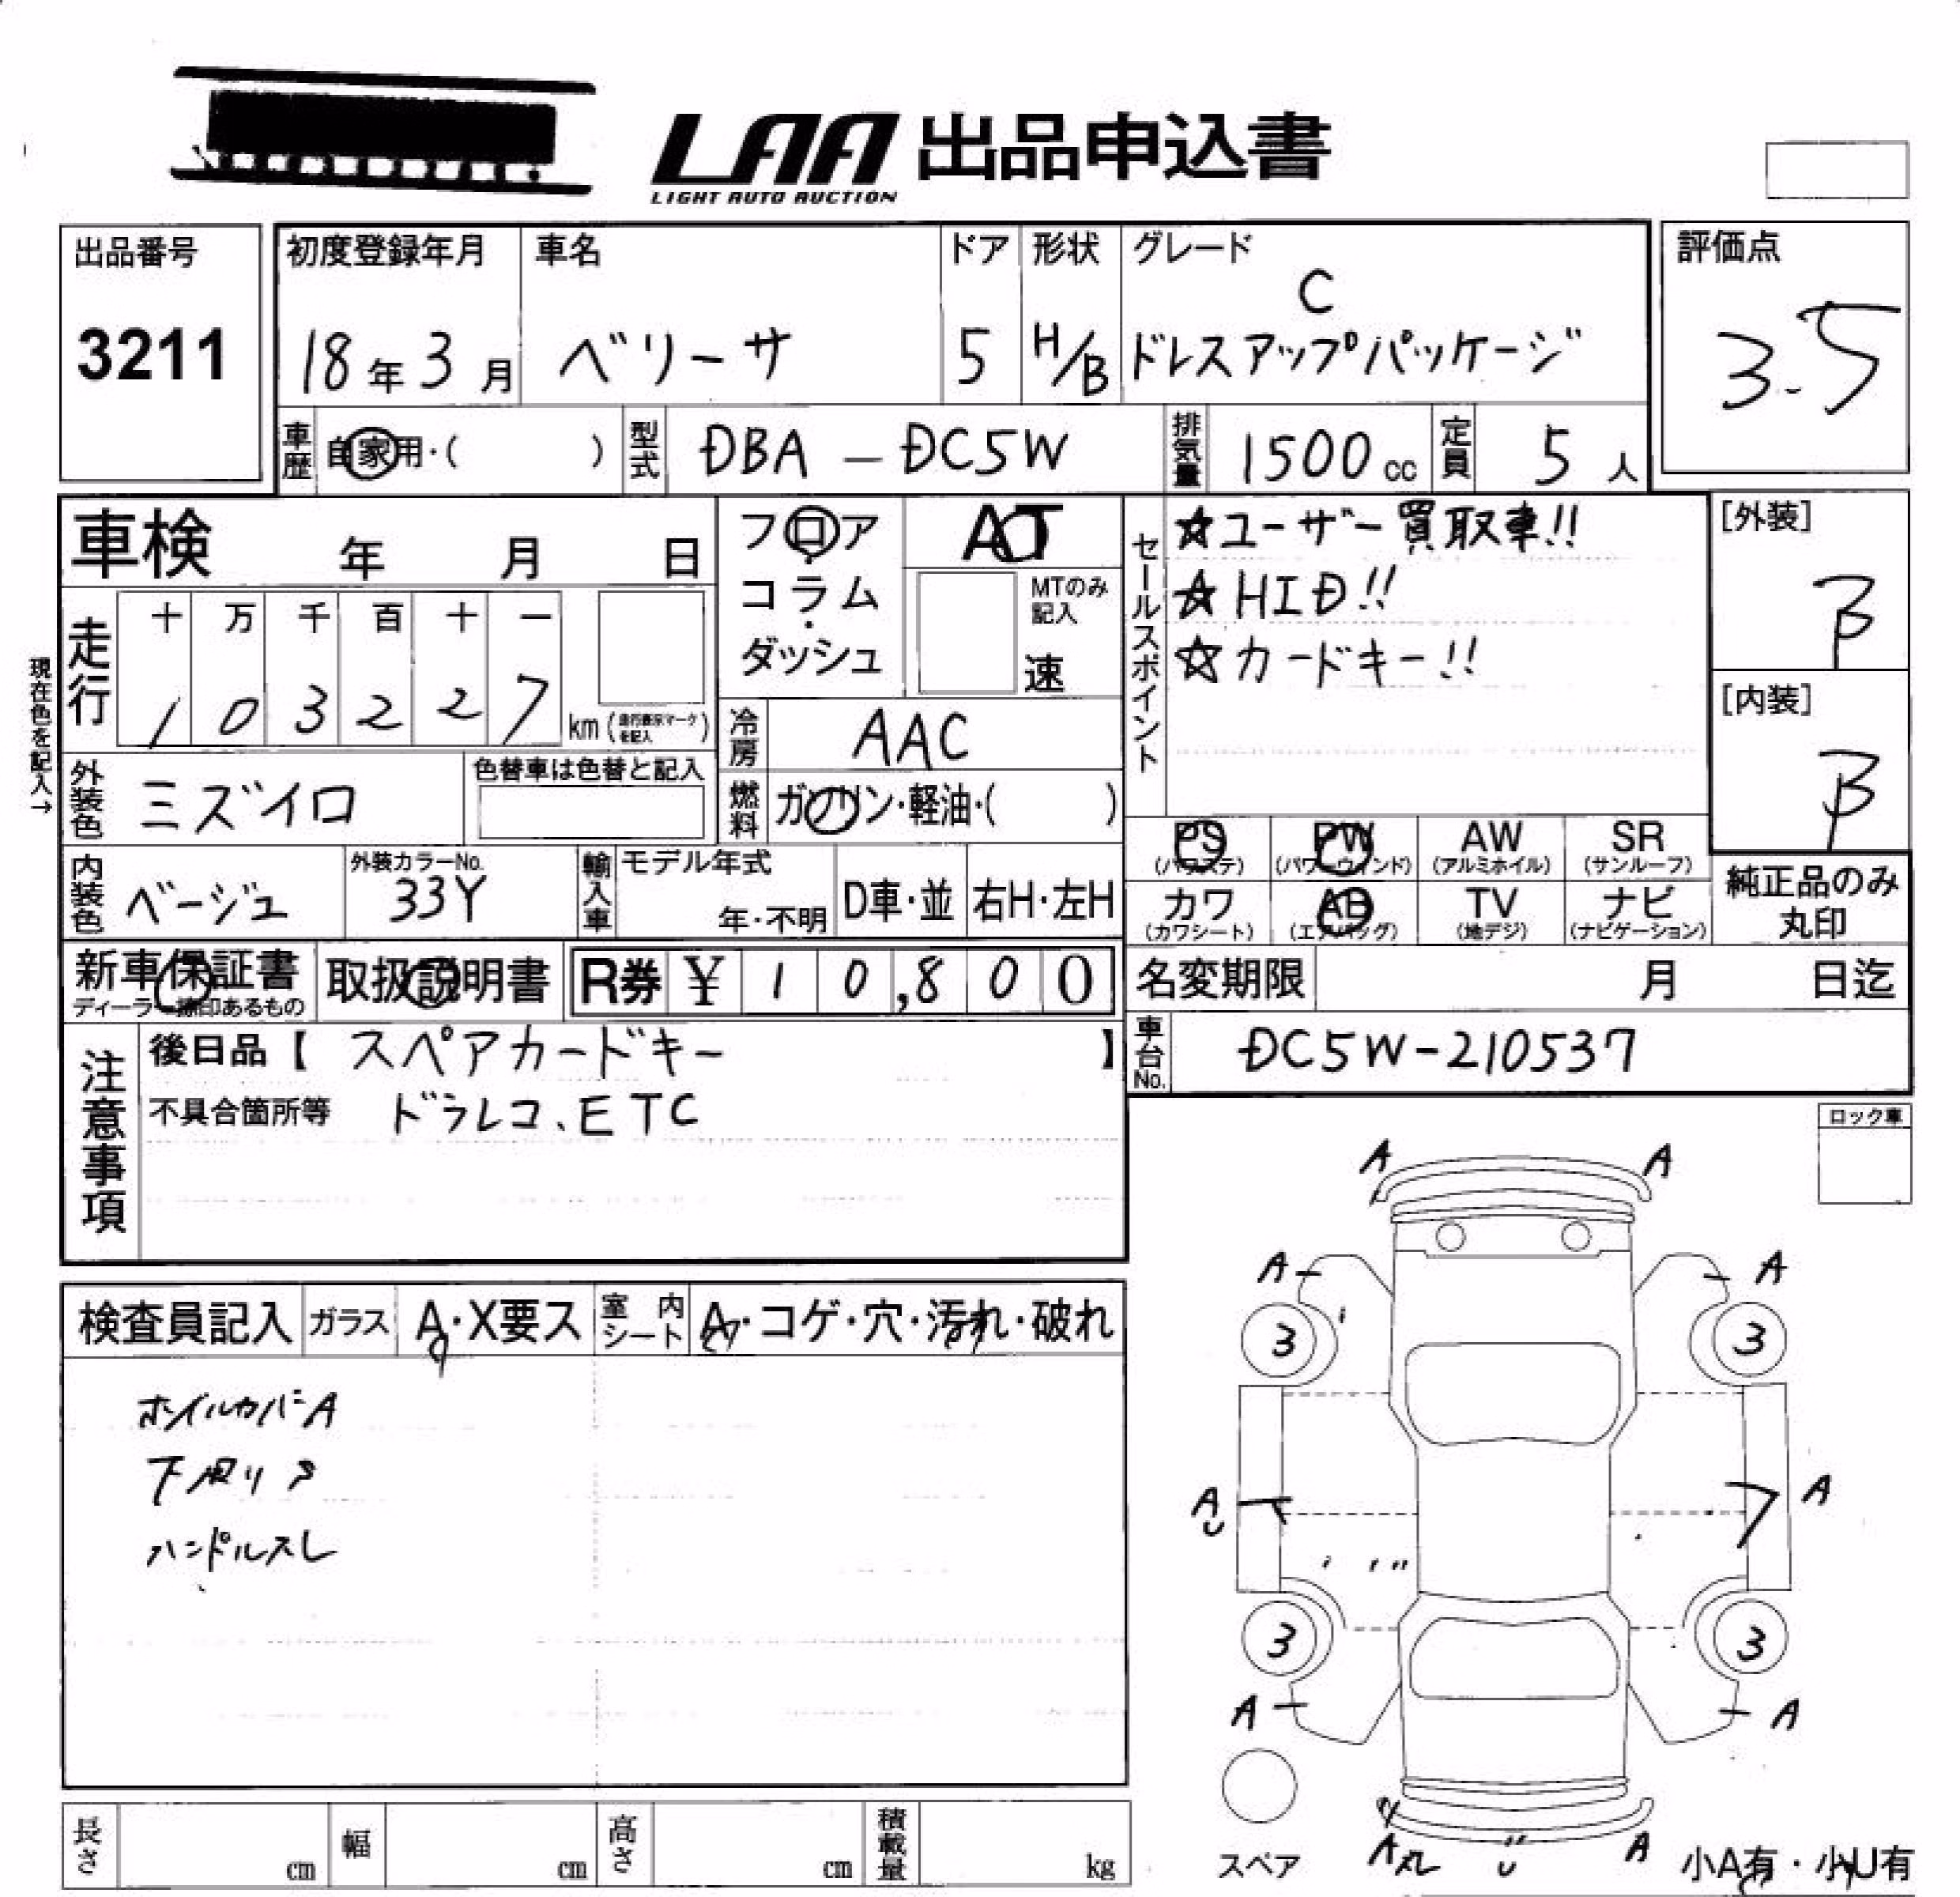 LAA 出品申込書
LIGHT AUTO AUCTION
出品番号
3211
初度登録年月
18年3月
車名
ベリーサ
ドア
5
形状
H/B
グレード
C
ドレスアップパッケージ
評価点
3.5
車歴
自家用・( )
型式
DBA-DC5W
排気量
1500cc
定員
5人
車検 年 月 日
走行
十 万 千 百 十 一
1 0 3 2 2 7
km(走行表示マークを記入)
現在色を記入→
フロア
・
コラム
・
ダッシュ
AT
MTのみ記入
速
冷房
AAC
燃料
ガソリン・軽油・( )
外装色
ミズイロ
色替車は色替と記入
内装色
ベージュ
外装カラーNo.
33Y
輸入車
モデル年式
年・不明
D車・並
右H・左H
セールスポイント
☆ユーザー買取車!!
☆HID!!
☆カードキー!!
[外装]
B
[内装]
B
PS
(パワステ)
PW
(パワーウィンド)
AW
(アルミホイル)
SR
(サンルーフ)
カワ
(カワシート)
AB
(エアバッグ)
TV
(地デジ)
ナビ
(ナビゲーション)
純正品のみ
丸印
新車保証書
ディーラー捺印あるもの
取扱説明書
R券 ¥ 1 0,8 0 0
名変期限 月 日迄
車台No.
DC5W-210537
注意事項
後日品【 スペアカードキー 】
不具合箇所等 ドラレコ、ETC
ロック車
検査員記入
ガラス
A・X要ス
室内シート
A・コゲ・穴・汚れ・破れ
ホイルカバーA
下回りサ
ハンドルスレ
A A
A A
3 3
A U A
3 3
A A
スペア
A丸 U A
小A有・小U有
長さ cm
幅 cm
高さ cm
積載量 kg